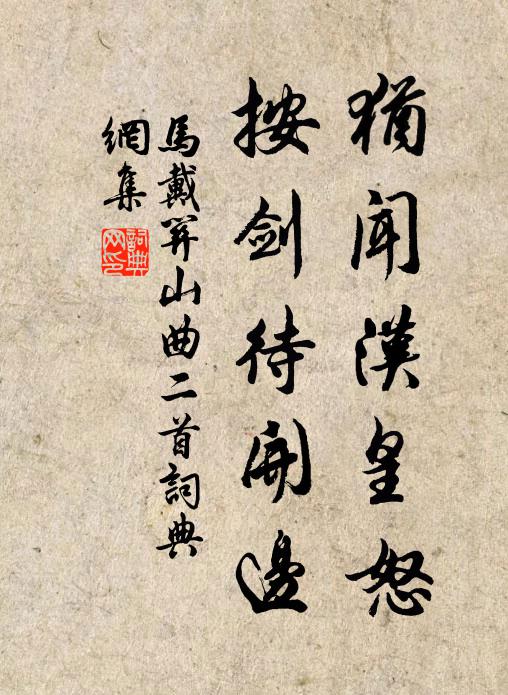 猶聞漢皇怒
按劍待開邊
馬戴關山曲二首詞典
網集
詞典
網印